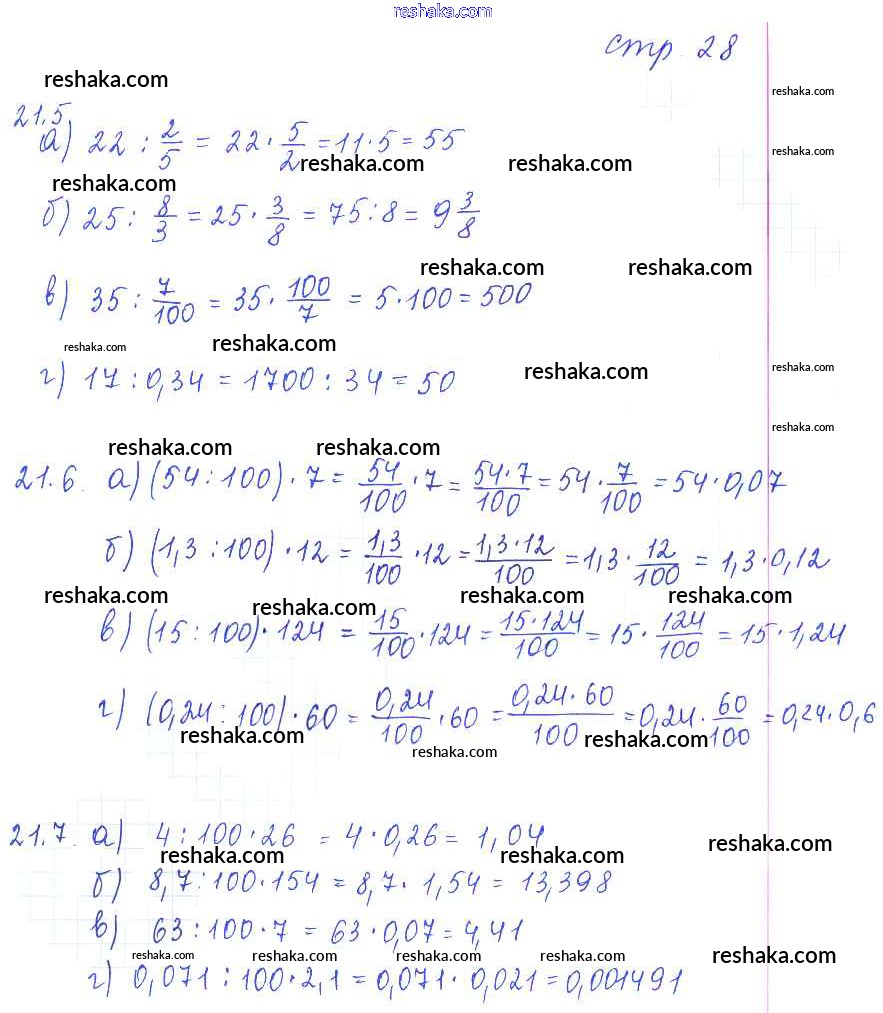 reshaka.com
стр. 28
reshaka.com
reshaka.com
21.5
а) 22 : 2/5 = 22 · 5/2 = 11 · 5 = 55
reshaka.com
reshaka.com reshaka.com
reshaka.com
б) 25 : 8/3 = 25 · 3/8 = 75 : 8 = 9 3/8
reshaka.com reshaka.com
в) 35 : 7/100 = 35 · 100/7 = 5 · 100 = 500
reshaka.com reshaka.com reshaka.com
г) 17 : 0,34 = 1700 : 34 = 50
reshaka.com
reshaka.com
reshaka.com
reshaka.com reshaka.com
21.6. а) (54 : 100) · 7 = 54/100 · 7 = 54 · 7/100 = 54 · 7/100 = 54 · 0,07
б) (1,3 : 100) · 12 = 1,3/100 · 12 = 1,3 · 12/100 = 1,3 · 12/100 = 1,3 · 0,12
reshaka.com reshaka.com reshaka.com reshaka.com
в) (15 : 100) · 124 = 15/100 · 124 = 15 · 124/100 = 15 · 124/100 = 15 · 1,24
г) (0,24 : 100) · 60 = 0,24/100 · 60 = 0,24 · 60/100 = 0,24 · 60/100 = 0,24 · 0,6
reshaka.com reshaka.com reshaka.com
21.7. а) 4 : 100 · 26 = 4 · 0,26 = 1,04
reshaka.com reshaka.com reshaka.com
б) 8,7 : 100 · 154 = 8,7 · 1,54 = 13,398
в) 63 : 100 · 7 = 63 · 0,07 = 4,41
reshaka.com reshaka.com reshaka.com reshaka.com reshaka.com
г) 0,071 : 100 · 2,1 = 0,071 · 0,021 = 0,001491